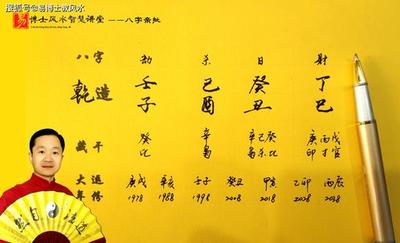 搜狐号@易博士教风水
易博士风水智慧讲堂——八字亲批
八字 劫 杀 日 财
乾造 壬 己 癸 丁
子 酉 丑 巳
藏 干 癸 辛 辛己癸 庚丙戊
比 枭 枭杀比 印才官
大运 庚戌 辛亥 壬子 癸丑 甲寅 乙卯 丙辰
年份 1978 1988 1998 2008 2018 2028 2038